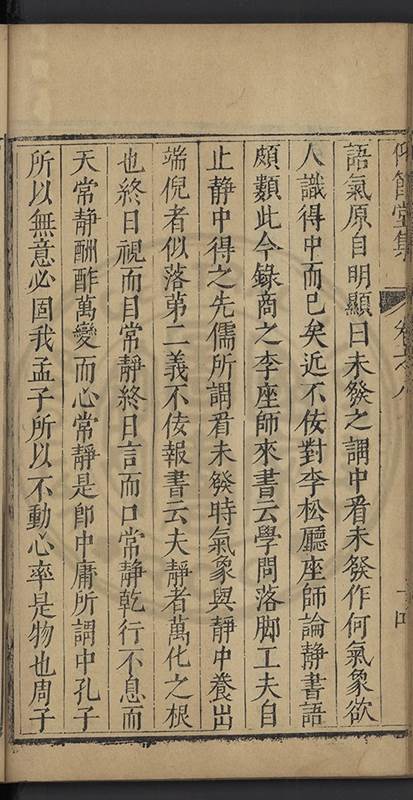 仰節堂集
卷之八
十四
語氣原自明顯曰未發之謂中看未發作何氣象欲
人識得中而已矣近不佞對李松廳座師論靜書語
頗類此今錄商之李座師來書云學問落脚工夫自
止靜中得之先儒所謂看未發時氣象與靜中養出
端倪者似落第二義不佞報書云夫靜者萬化之根
也終日視而目常靜終日言而口常靜乾行不息而
天常靜酬酢萬變而心常靜是卽中庸所謂中孔子
所以無意必固我孟子所以不動心率是物也周子